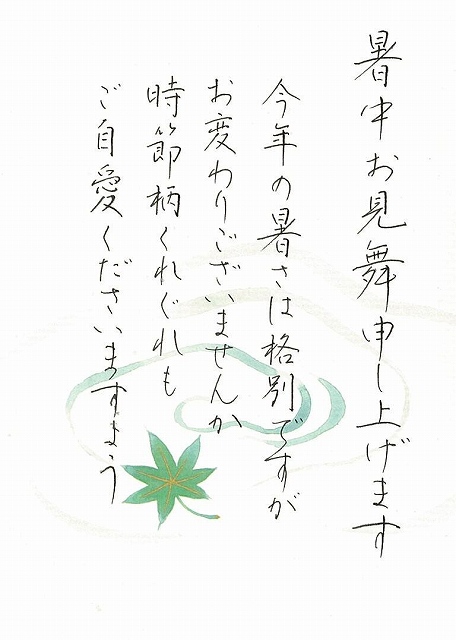 暑中お見舞申し上げます
今年の暑さは格別ですが
お変わりございませんか
時節柄くれぐれも
ご自愛くださいますよう